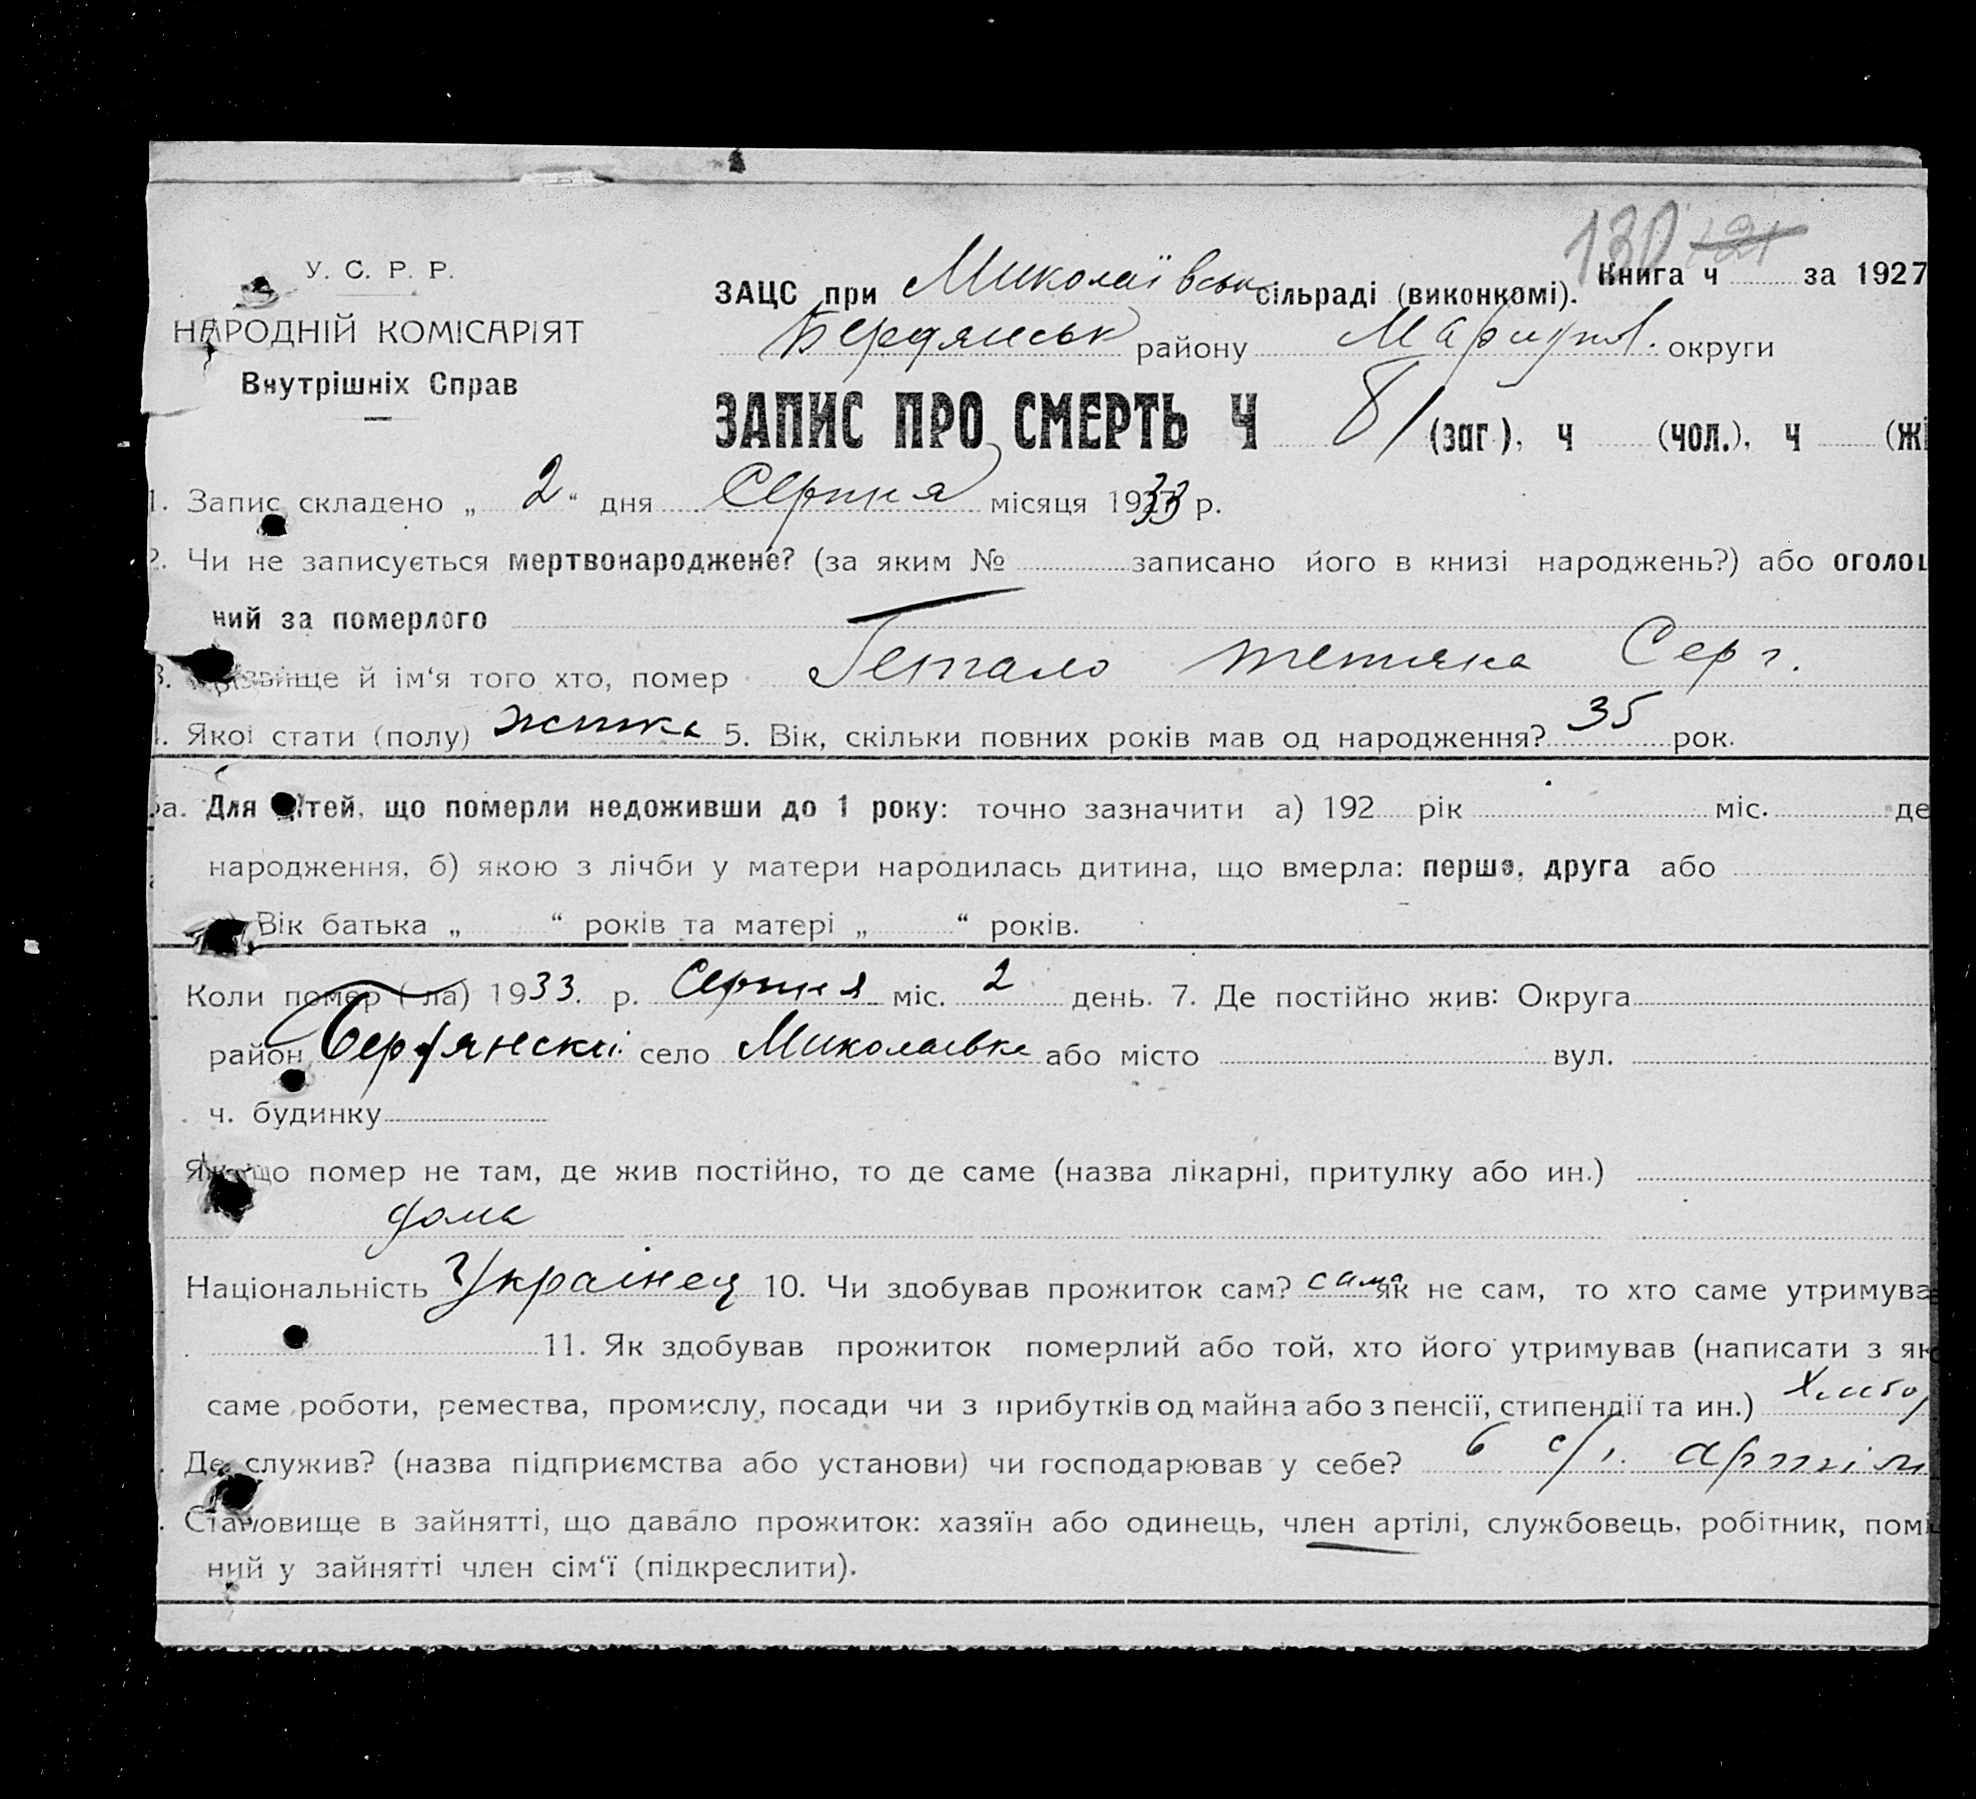 130 121
У. С. Р. Р.
НАРОДНІЙ КОМІСАРІЯТ
Внутрішніх Справ
ЗАЦС при Миколаївськ сільраді (виконкомі). Книга ч за 1927
Бердянськ району Маріупол. округи
ЗАПИС ПРО СМЕРТЬ Ч 81 (заг.), ч (чол.), ч (жі
1. Запис складено „ 2 “ дня Серпня місяця 1933 р.
2. Чи не записується мертвонароджене? (за яким № записано його в книзі народжень?) або оголош
ний за померлого
3. Прізвище й ім‘я того хто, помер Гетало тетяна Серг.
4. Якої стати (полу) жінка 5. Вік, скільки повних років мав од народження? 35 рок.
5а. Для дітей, що померли недоживши до 1 року: точно зазначити а) 192 рік міс. де
народження, б) якою з лічби у матери народилась дитина, що вмерла: перша, друга або
Вік батька „ “ років та матері „ “ років.
Коли помер (-ла) 1933. р. Серпня міс. 2 день. 7. Де постійно жив: Округа
район Бердянский село Миколаевка або місто вул.
ч. будинку
Якщо помер не там, де жив постійно, то де саме (назва лікарні, притулку або ин.)
дома
Національність Українец 10. Чи здобував прожиток сам? сама як не сам, то хто саме утримува
11. Як здобував прожиток померлий або той, хто його утримував (написати з як
саме роботи, ремества, промислу, посади чи з прибутків од майна або з пенсії, стипендії та ин.) Хлібор
Де служив? (назва підприємства або установи) чи господарював у себе? в с/г. артіли
Становище в зайнятті, що давало прожиток: хазяїн або одинець, член артілі, службовець, робітник, помі
ний у зайнятті член сім‘ї (підкреслити).